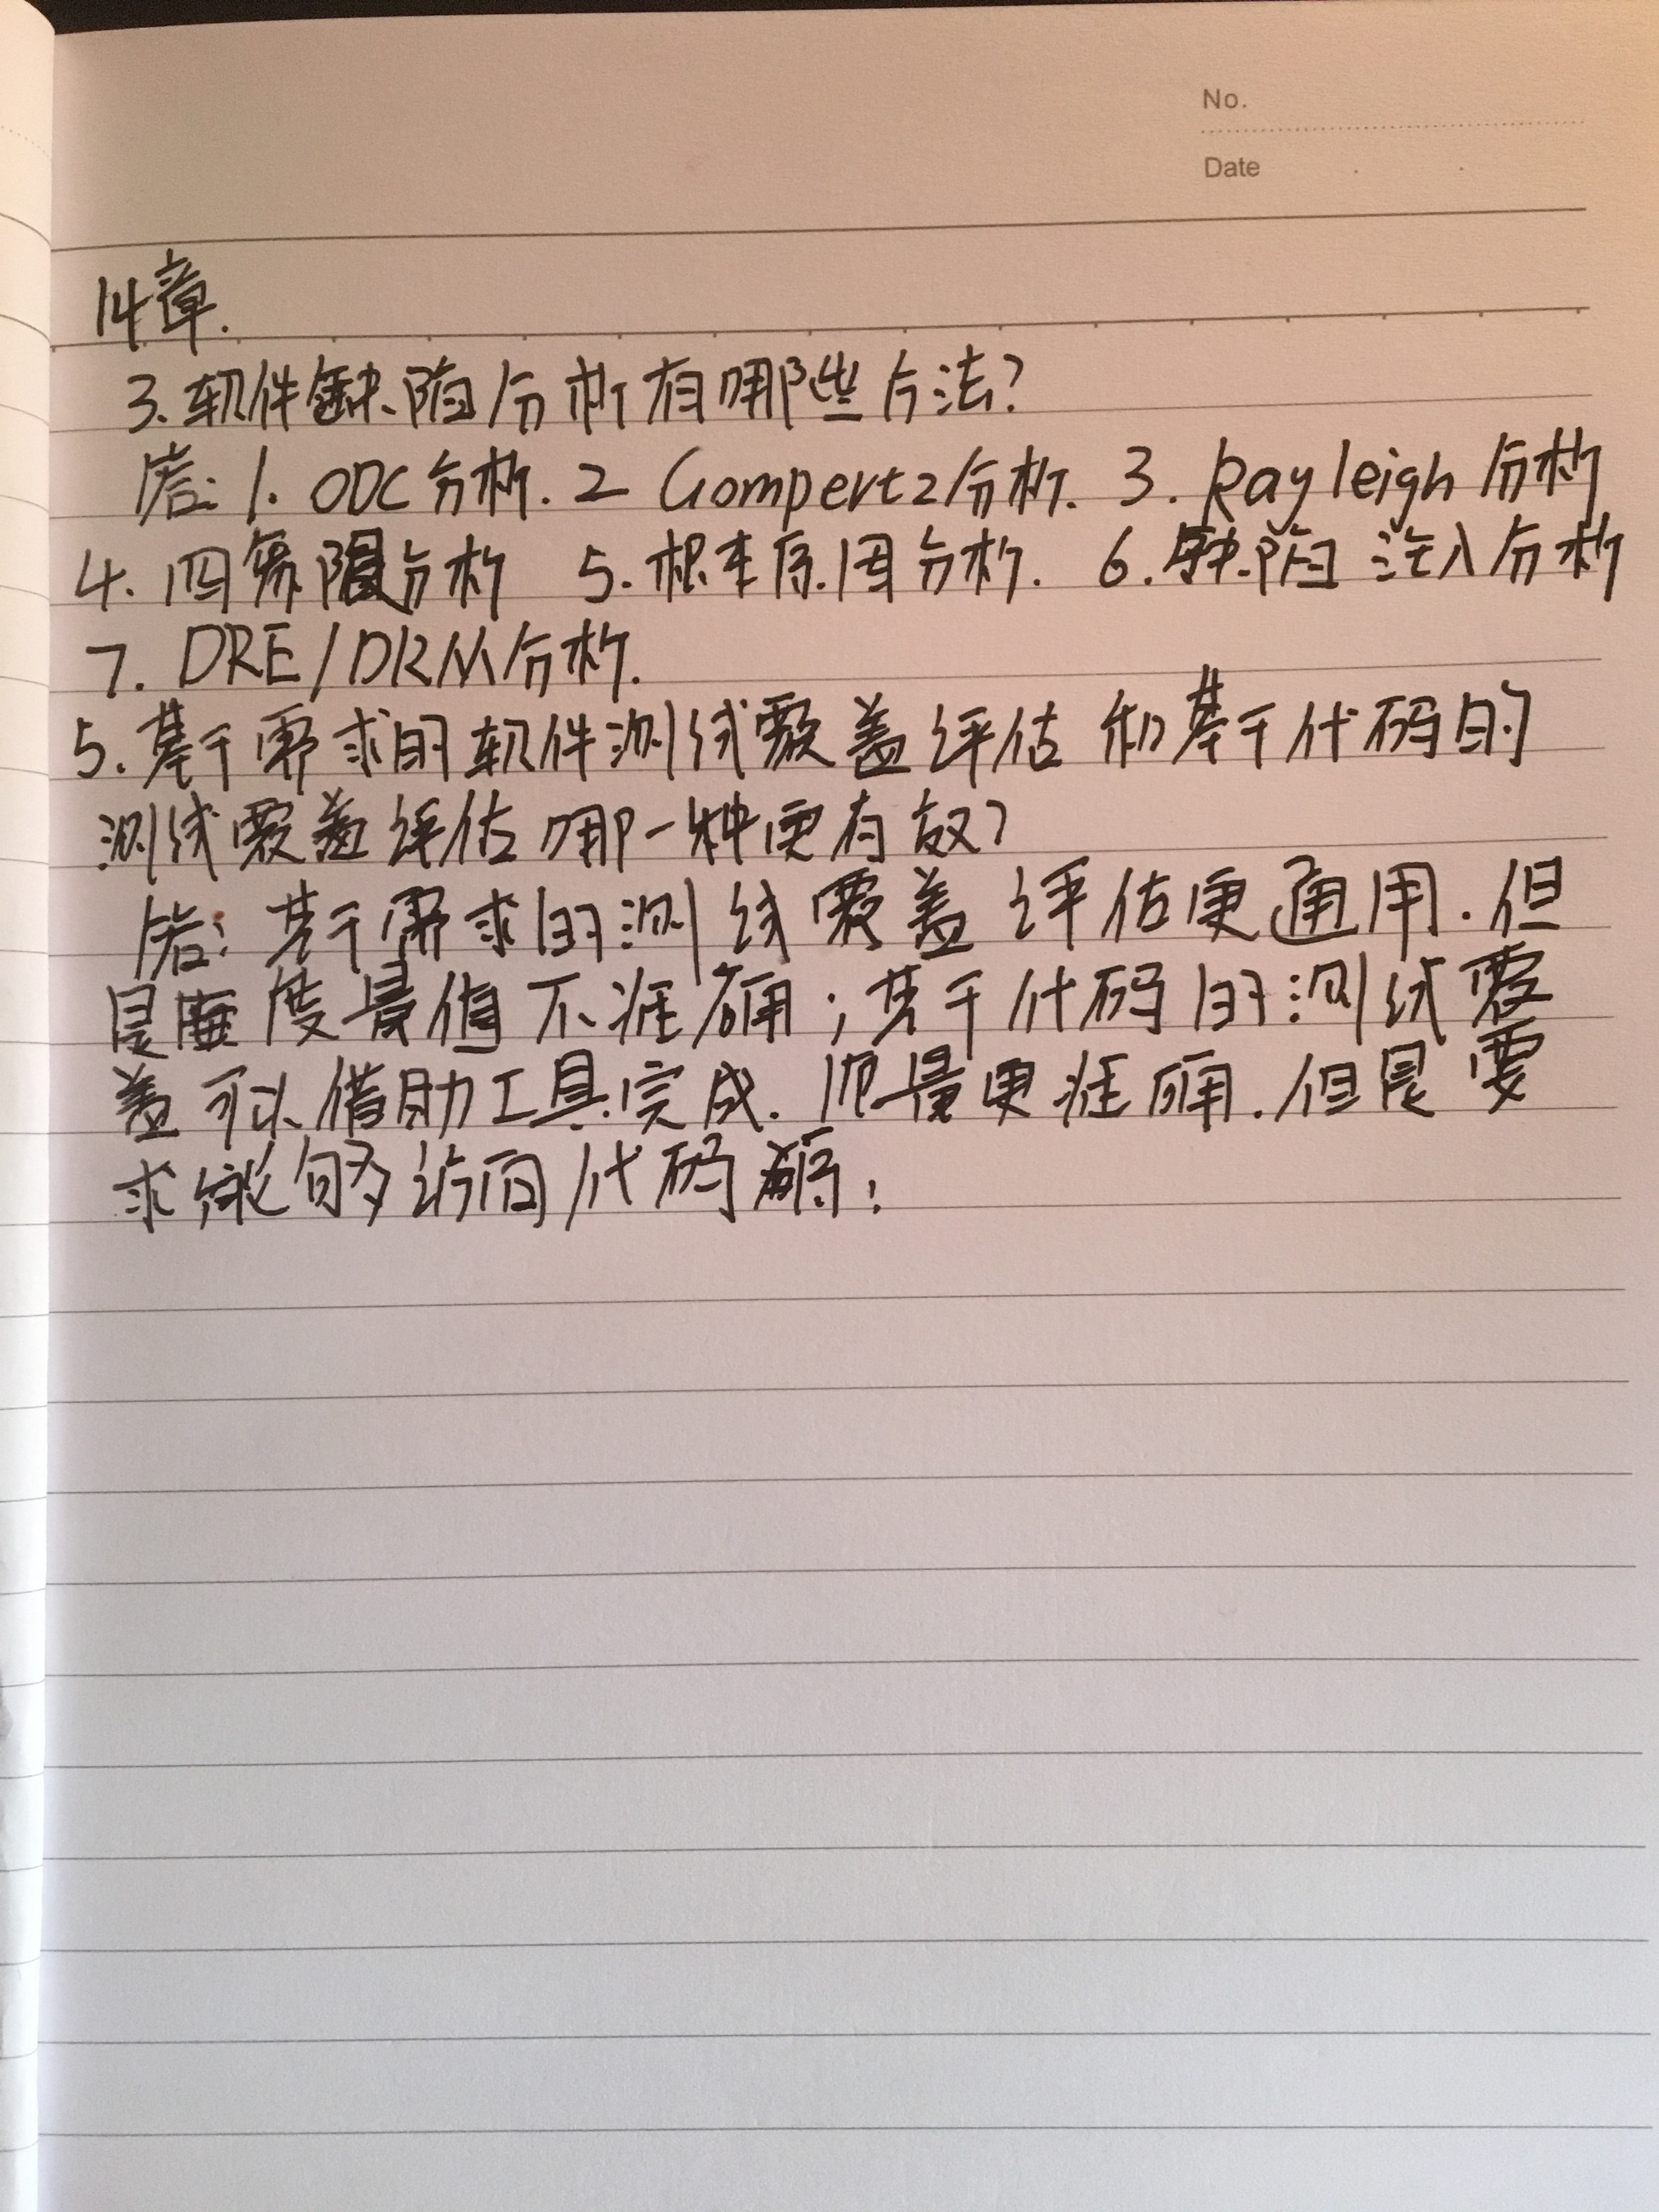 No.
Date
14章.
3.软件缺陷分析有哪些方法?
答: 1. ODC分析. 2 Gompertz分析. 3. Rayleigh分析
4. 四象限分析 5. 根本原因分析. 6. 缺陷注入分析
7. DRE/DRM分析.
5. 基于需求的软件测试覆盖评估和基于代码的
测试覆盖评估哪一种更有效?
答: 基于需求的测试覆盖评估更通用.但
是度量值不准确;基于代码的测试覆
盖可以借助工具完成.度量更准确.但是要
求能够访问代码源.